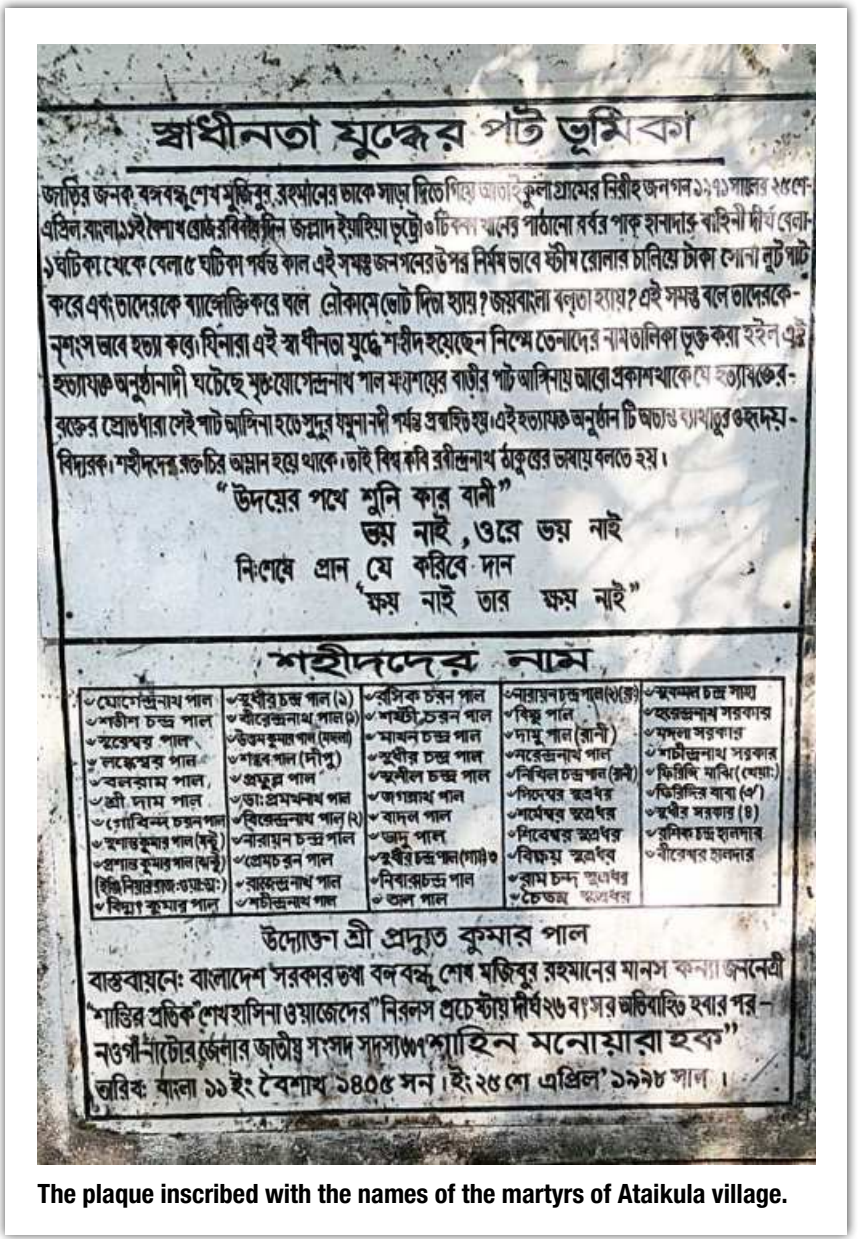 স্বাধীনতা যুদ্ধের পট ভূমিকা
জাতির জনক বঙ্গবন্ধু শেখ মুজিবুর রহমানের ডাকে সাড়া দিতে গিয়ে আতাইকুলা গ্রামের নিরীহ জনগন ১৯৭১ সালের ২৫শে-
এপ্রিল বাংলা ১১ই বৈশাখ রোজ রবিবার দিন জল্লাদ ইয়াহিয়া ভূট্টো ও টিক্কা খানের পাঠানো বর্বর পাক হানাদার বাহিনী দীর্ঘ বেলা-
১ ঘটিকা থেকে বেলা ৫ ঘটিকা পর্যন্ত কাল এই সমস্ত জনগনের উপর নির্মম ভাবে ষ্টীম রোলার চালিয়ে টাকা সোনা লুটপাট
করে এবং তাদেরকে ব্যাঙ্গোক্তি করে বলে নৌকামে ভোট দিতা হ্যায়? জয়বাংলা বলতা হ্যায়? এই সমস্ত বলে তাদেরকে-
নৃশংস ভাবে হত্যা করে। যিনারা এই স্বাধীনতা যুদ্ধে শহীদ হয়েছেন নিম্মে তেনাদের নাম তালিকা ভূক্ত করা হইল এই
হত্যাযজ্ঞ অনুষ্ঠানাদী ঘটেছে মৃতঃ যোগেন্দ্রনাথ পাল মহাশয়ের বাড়ীর পাট আঙ্গিনায় আরো প্রকাশ থাকে যে হত্যাযজ্ঞের-
রক্তের স্রোতধারা সেই পাট আঙ্গিনা হতে সুদুর যমুনা নদী পর্যন্ত প্রবাহিত হয়। এই হত্যাযজ্ঞ অনুষ্ঠান টি অত্যন্ত ব্যাথাতুর ও হৃদয়-
বিদারক। শহীদদের রক্ত চির অম্লান হয়ে থাকে। তাই বিশ্ব কবি রবীন্দ্রনাথ ঠাকুরের ভাষায় বলতে হয়।
“উদয়ের পথে শুনি কার বানী”
ভয় নাই, ওরে ভয় নাই
নিঃশেষে প্রান যে করিবে দান
“ক্ষয় নাই তার ক্ষয় নাই”
শহীদদের নাম
যোগেন্দ্রনাথ পাল
শতীশ চন্দ্র পাল
সুরেশ্বর পাল
লঙ্কেশ্বর পাল
বলরাম পাল
শ্রী দাম পাল
গোবিন্দ চরন পাল
সুশান্ত কুমার পাল (মন্টু)
প্রশান্ত কুমার পাল (ঝন্টু)
বিদ্যুৎ কুমার পাল
সুধীর চন্দ্র পাল (১)
বীরেন্দ্রনাথ পাল (১)
উত্তম কুমার পাল
শঙ্কর পাল (দীপু)
প্রফুল্ল পাল
ডাঃ প্রমথনাথ পাল
বিরেন্দ্রনাথ পাল (২)
নারায়ন চন্দ্র পাল
প্রেমচরন পাল
রাজেন্দ্রনাথ পাল
শচীন্দ্রনাথ পাল
রসিক চরন পাল
ষষ্টী চরন পাল
মাখন চন্দ্র পাল
সুধীর চন্দ্র পাল
সুনীল চন্দ্র পাল
জগন্নাথ পাল
বাদল পাল
ভাদু পাল
সুধীর চন্দ্র পাল
নিবারনচন্দ্র পাল
তাল পাল
নারায়ন চন্দ্র পাল (২)
বিষ্ণু পাল
দামু পাল (রানী)
নরেন্দ্রনাথ পাল
নিখিল চন্দ্র পাল (রানী)
সিদ্ধেশ্বর সুত্রধর
শর্মেশ্বর সুত্রধর
শিবেশ্বর সুত্রধর
বিজয় সুত্রধর
রাম চন্দ্র সুত্রধর
চৈতন্য সুত্রধর
সুকমল চন্দ্র সাহা
হরেন্দ্রনাথ সরকার
মঙ্গলা সরকার
শচীন্দ্রনাথ সরকার
ফিরিঙ্গি মাঝি
ফিরিঙ্গির বাবা
সুধীর সরকার (৪)
রশিক চন্দ্র হালদার
বীরেশ্বর হালদার
উদ্যোক্তা শ্রী প্রদ্যুত কুমার পাল
বাস্তবায়নেঃ বাংলাদেশ সরকার তথা বঙ্গবন্ধু শেখ মজিবুর রহমানের মানস কন্যা জননেত্রী
“শান্তির প্রতিক” শেখ হাসিনা ওয়াজেদের” নিরলস প্রচেষ্টায় দীর্ঘ ২৬ বৎসর অতিবাহিত হবার পর-
নওগাঁ-নাটোর জেলার জাতীয় সংসদ সদস্যা “শাহিন মনোয়ারা হক”
তারিখঃ বাংলা ১১ ইং বৈশাখ ১৪০৫ সন। ইং ২৫শে এপ্রিল' ১৯৯৮ সাল।
The plaque inscribed with the names of the martyrs of Ataikula village.